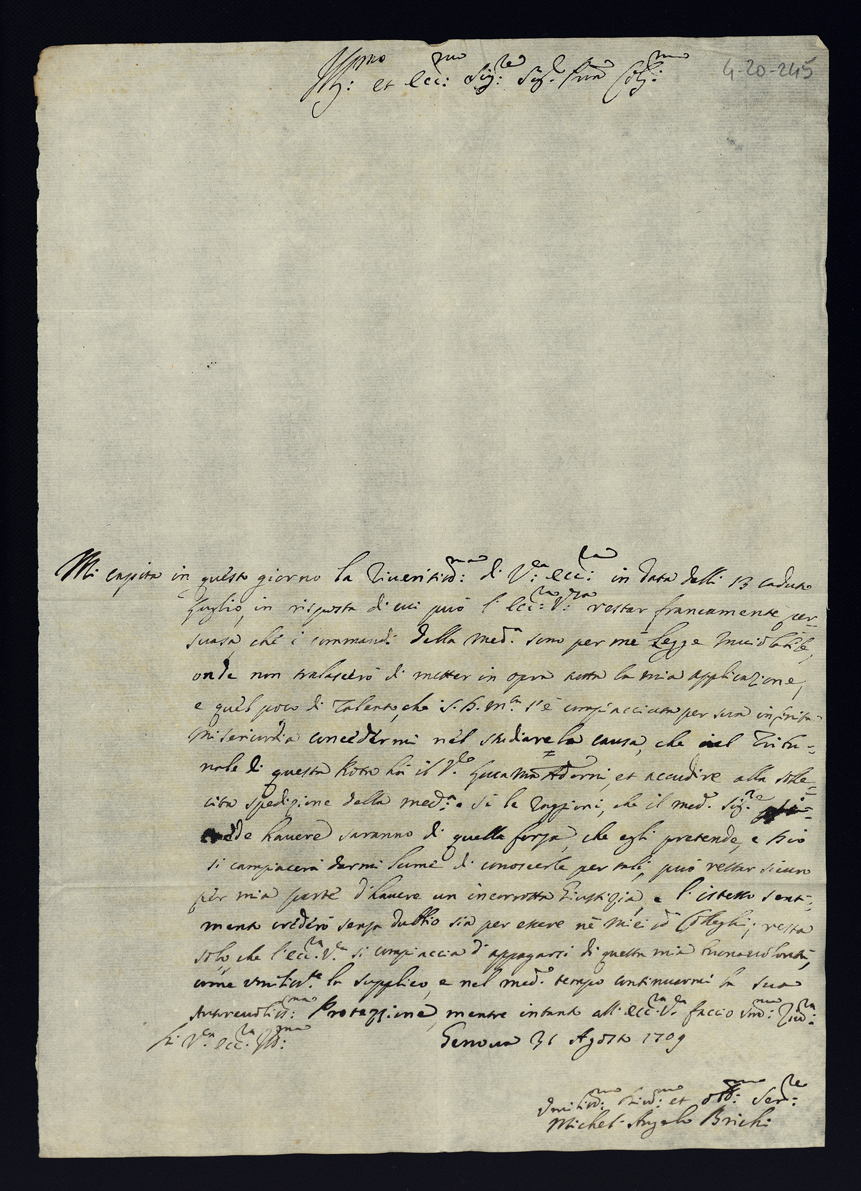 Ill:mo et Ecc:mo Sig:re Sig:r P̃rõn Col:mo
4-20-245
Mi capita in questo giorno la riveritiss:ma di V:ra Ecc:za in data delli 13 caduto
Luglio, in risposta di cui può l'Ecc:za V:ra restar francamente per-
suasa, che i commandi della med:a sono per me Legge inviolabile,
onde non tralascierò di metter in opra tutta la mia applicazione,
e quel poco di talento, che S. D. M.tà s'è compiacciuta per sua infinita
Misericordia concedermi nel studiare la causa, che nel Tribu-
nale di questa Rota hà il Adorni, et accudire alla solle-
cita spedizione della med:a. Se le raggioni, che il med:o Sig:re
crede havere saranno di quella forza, che egli pretende, e Dio
si compiacerà darmi lume di conoscerle per tali, può restar sicuro
per mia parte d'havere un incorrotta Giustizia, e l'istesso senti-
mento crederò senza dubbio sia per essere nè miei SS:ri Colleghi; resta
solo che l'Ecc:za V:ra si compiaccia d'appagarsi di questa mia buona volontà,
come umilm:te la supplico, e nel med:o tempo continuarmi la sua
Autorevoliss:ma Protezzione, mentre intanto all'Ecc:za V:ra faccio um:ma riv:za
Di V:ra Ecc:za Ill:ma
Genova 31 Agosto 1709
Umiliss:mo Div:mo et obb:mo Ser:re
Michel-Angelo Brichi